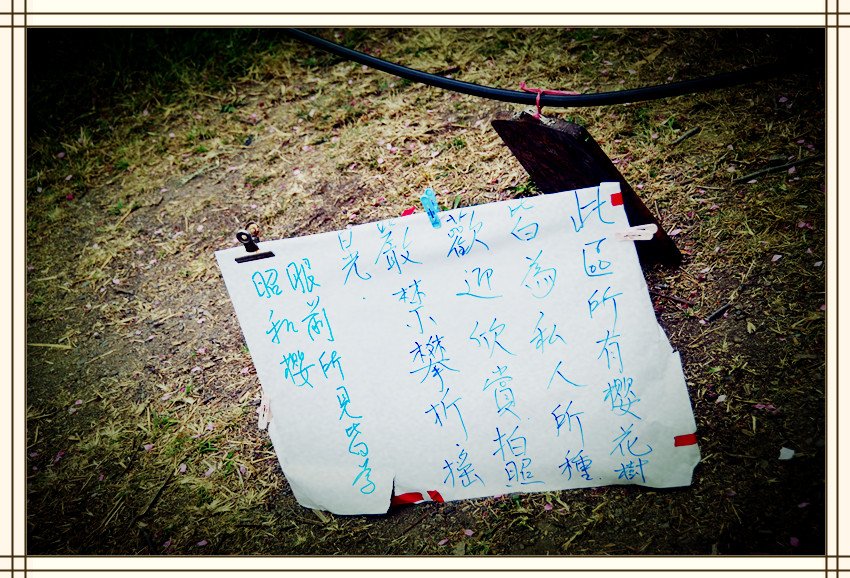 此區所有櫻花樹
皆為私人所種.
歡迎欣賞拍照
嚴禁攀折搖
晃.
眼前所見皆為
昭和櫻